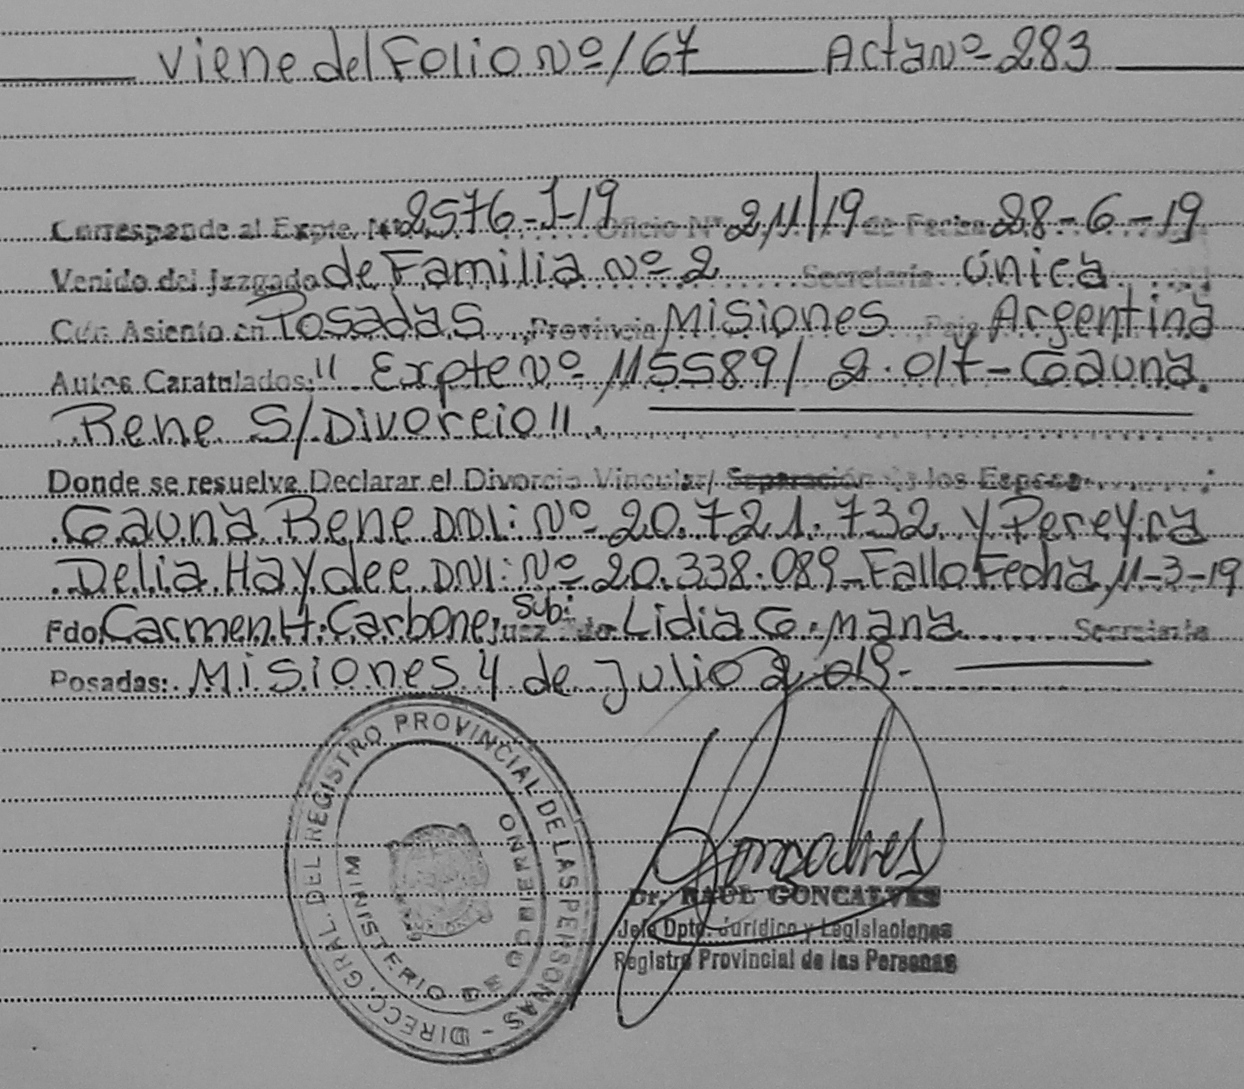 Viene del Folio Nº 167 Acta Nº 283
Corresponde al Expte. Nº 2576-J-19 Oficio Nº 211/19 de Fecha 28-6-19
Venido del Juzgado de Familia Nº 2 Secretaría Única
Con Asiento en Posadas Provincia Misiones País Argentina
Autos Caratulados: "Expte Nº 115589/2.017-Gauna
Rene S/Divorcio".
Donde se resuelve Declarar el Divorcio Vincular/ Separación de los Esposos
Gauna Rene DNI: Nº 20.721.732 y Pereyra
Delia Haydee DNI: Nº 20.338.089-Fallo Fecha 11-3-19
Fdo. Carmen H. Carbone, Juez Sub: Fdo. Lidia G. Mana Secretaria
Posadas: Misiones 4 de Julio 2.019.-
DIRECC. GRAL. DEL REGISTRO PROVINCIAL DE LAS PERSONAS -
MINISTERIO DE GOBIERNO
Goncalves
Dr. RAUL GONCALVES
Jefe Dpto. Jurídico y Legislaciones
Registro Provincial de las Personas